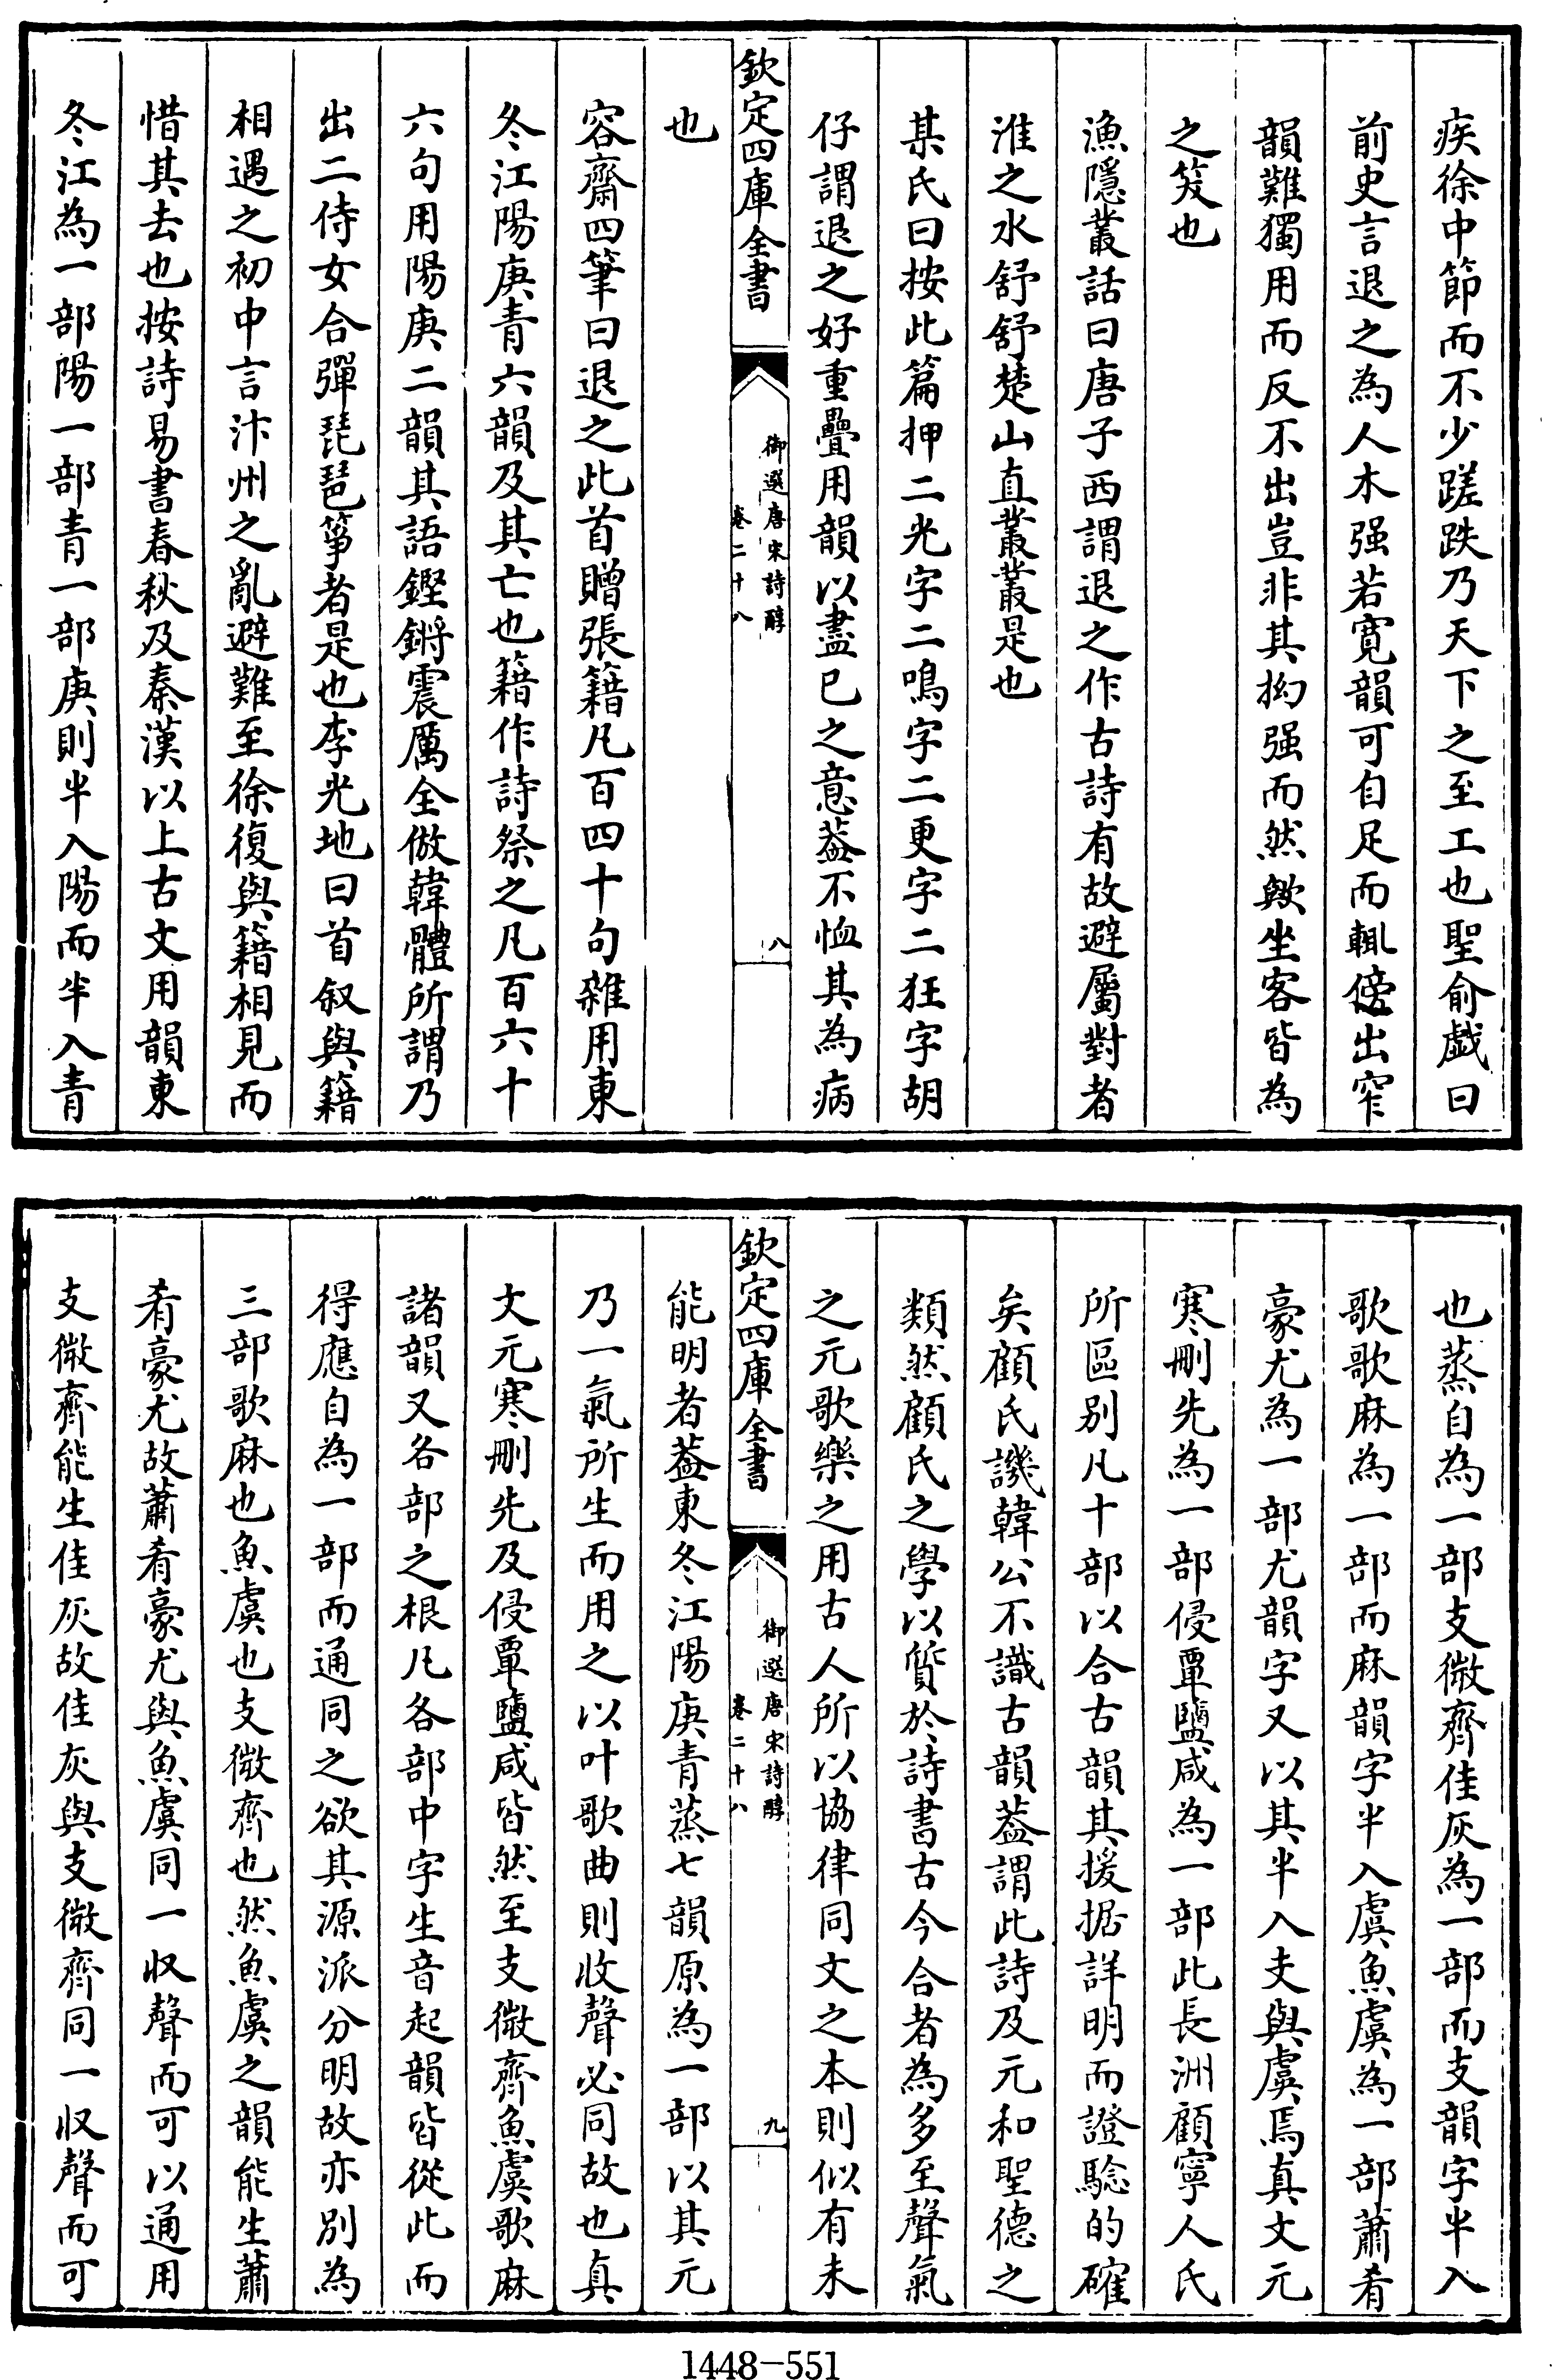 疾徐中節而不少蹉跌乃天下之至工也聖俞戯曰
前史言退之為人木强若寛韻可自足而輒傍出窄
韻難獨用而反不出豈非其拗强而然歟坐客皆為
之笑也
漁隱叢話曰唐子西謂退之作古詩有故避屬對者
淮之水舒舒楚山直叢叢是也
某氏曰按此篇押二光字二鳴字二更字二狂字胡
仔謂退之好重疊用韻以盡已之意葢不恤其為病
欽定四庫全書
御選唐宋詩醇
卷二十八
八
也
容齋四筆曰退之此首贈張籍凡百四十句雜用東
冬江陽庚青六韻及其亡也籍作詩祭之凡百六十
六句用陽庚二韻其語鏗鏘震厲全倣韓體所謂乃
出二侍女合彈琵琶箏者是也李光地曰首叙與籍
相遇之初中言汴州之亂避難至徐復與籍相見而
惜其去也按詩易書春秋及秦漢以上古文用韻東
冬江為一部陽一部青一部庚則半入陽而半入青
也蒸自為一部支微齊佳灰為一部而支韻字半入
歌歌麻為一部而麻韻字半入虞魚虞為一部蕭肴
豪尤為一部尤韻字又以其半入支與虞焉真文元
寒刪先為一部侵覃鹽咸為一部此長洲顧寧人氏
所區别凡十部以合古韻其援据詳明而證驗的確
矣顧氏譏韓公不識古韻葢謂此詩及元和聖德之
類然顧氏之學以質於詩書古今合者為多至聲氣
之元歌樂之用古人所以協律同文之本則似有未
欽定四庫全書
御選唐宋詩醇
卷二十八
九
能明者葢東冬江陽庚青蒸七韻原為一部以其元
乃一氣所生而用之以叶歌曲則收聲必同故也真
文元寒刪先及侵覃鹽咸皆然至支微齊魚虞歌麻
諸韻又各部之根凡各部中字生音起韻皆從此而
得應自為一部而通同之欲其源派分明故亦别為
三部歌麻也魚虞也支微齊也然魚虞之韻能生蕭
肴豪尤故蕭肴豪尤與魚虞同一収聲而可以通用
支微齊能生佳灰故佳灰與支微齊同一収聲而可
1448-551